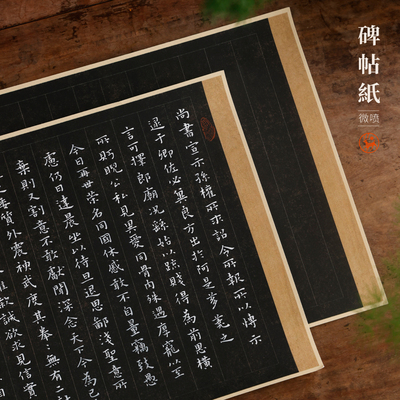 碑帖紙
微喷
尚書宣示孫權所求詔令所報所以博示
逮于卿佐必冀良方出於阿是芻蕘之
言可擇郎廟況繇始以疏賤得為前恩橫
所盼睨公私見異愛同骨肉殊遇厚寵以至
今日再世榮名同國休慼敢不自量竊致愚
慮仍日達晨坐以待旦退思鄙淺聖意所
棄則又割意不敢獻聞深念天下今為已
委質外震神武度其拳〻無有二計
款誠欲求見信實